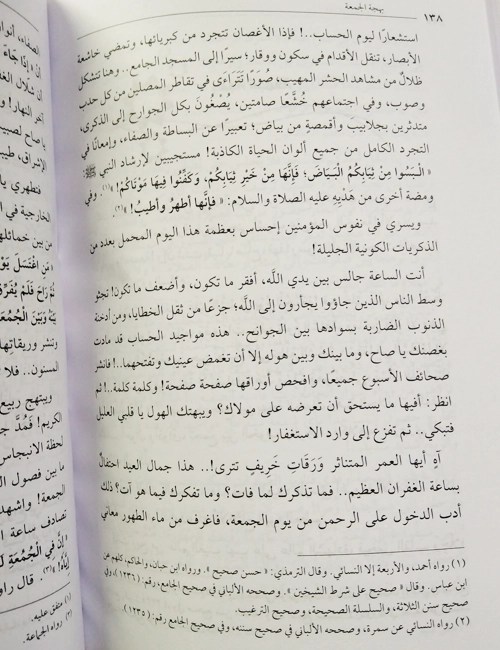 ١٣٨
بهجة الجمعة
استشعارًا ليوم الحساب..! فإذا الأغصان تتجرد من كبريائها، وتمضي خاشعة
الأبصار، تنقل الأقدام في سكون ووقار؛ سيرًا إلى المسجد الجامع.. وهنا تتشكل
ظلالٌ من مشاهد الحشر المهيب، صُوَرًا تتَراءَى في تقاطر المصلين من كل حدب
وصوب، وفي اجتماعهم خُشَّعًا صامتين، يُصْغُونَ بكل الجوارح إلى الذكرى،
متدثرين بجلابيبَ وأقمصةٍ من بياض؛ تعبيرًا عن البساطة والصفاء، وإمعانًا في
التجرد الكامل من جميع ألوان الحياة الكاذبة! مستجيبين لإرشاد النبي ﷺ:
«الْبَسُوا مِنْ ثِيَابِكُمُ الْبَيَاضَ؛ فَإِنَّهَا مِنْ خَيْرِ ثِيَابِكُمْ، وَكَفِّنُوا فِيهَا مَوْتَاكُمْ!»(١). وفي
ومضة أخرى من هَدْيِهِ عليه الصلاة والسلام: «فإنَّها أطهرُ وأطيبُ!»(٢).
ويسري في نفوس المؤمنين إحساس بعظمة هذا اليوم المحمل بعدد من
الذكريات الكونية الجليلة!
أنت الساعة جالس بين يدي اللَّه، أفقر ما تكون، وأضعف ما تكون! تجثو
وسط الناس الذين جاؤوا يجأرون إلى اللَّه؛ جزعًا من ثقل الخطايا، ومن أدخنة
الذنوب الضاربة بسوادها بين الجوانح.. هذه مواجيد الحساب قد مادت
بغصنك يا صاح، وما بينك وبين هوله إلا أن تغمض عينيك وتفتحهما..! فانشر
صحائف الأسبوع جميعًا، وافحص أوراقها صفحة صفحة! وكلمة كلمة..! ثم
انظر: أفيها ما يستحق أن تعرضه على مولاك؟ ويبهتك الهول يا قلبي العليل
فتبكي.. ثم تفزع إلى وارد الاستغفار!
آهٍ أيها العمر المتناثر وَرَقَاتِ خَرِيفٍ تترى!.. هذا جمال العيد احتفالٌ
بساعة الغفران العظيم.. فما تذكرك لما فات؟ وما تفكرك فيما هو آت؟ ذلك
أدب الدخول على الرحمن من يوم الجمعة، فاغرف من ماء الطهور معاني
(١) رواه أحمد، والأربعة إلا النسائي. وقال الترمذي: «حسن صحيح». ورواه ابن حبان، والحاكم، كلهم عن
ابن عباس. وقال «صحيح على شرط الشيخين». وصححه الألباني في صحيح الجامع، رقم: (١٢٣٦) وفي
صحيح سنن الثلاثة، والسلسلة الصحيحة، وصحيح الترغيب.
(٢) رواه النسائي عن سمرة، وصححه الألباني في صحيح سننه، وفي صحيح الجامع رقم: (١٢٣٥).